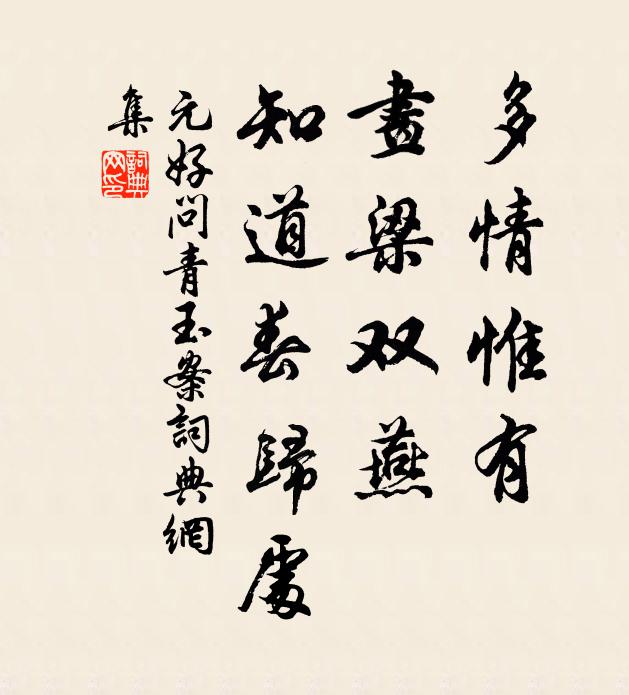 多情惟有
畫梁双燕
知道春歸處
元好问青玉案詞典網
集
詞典网印